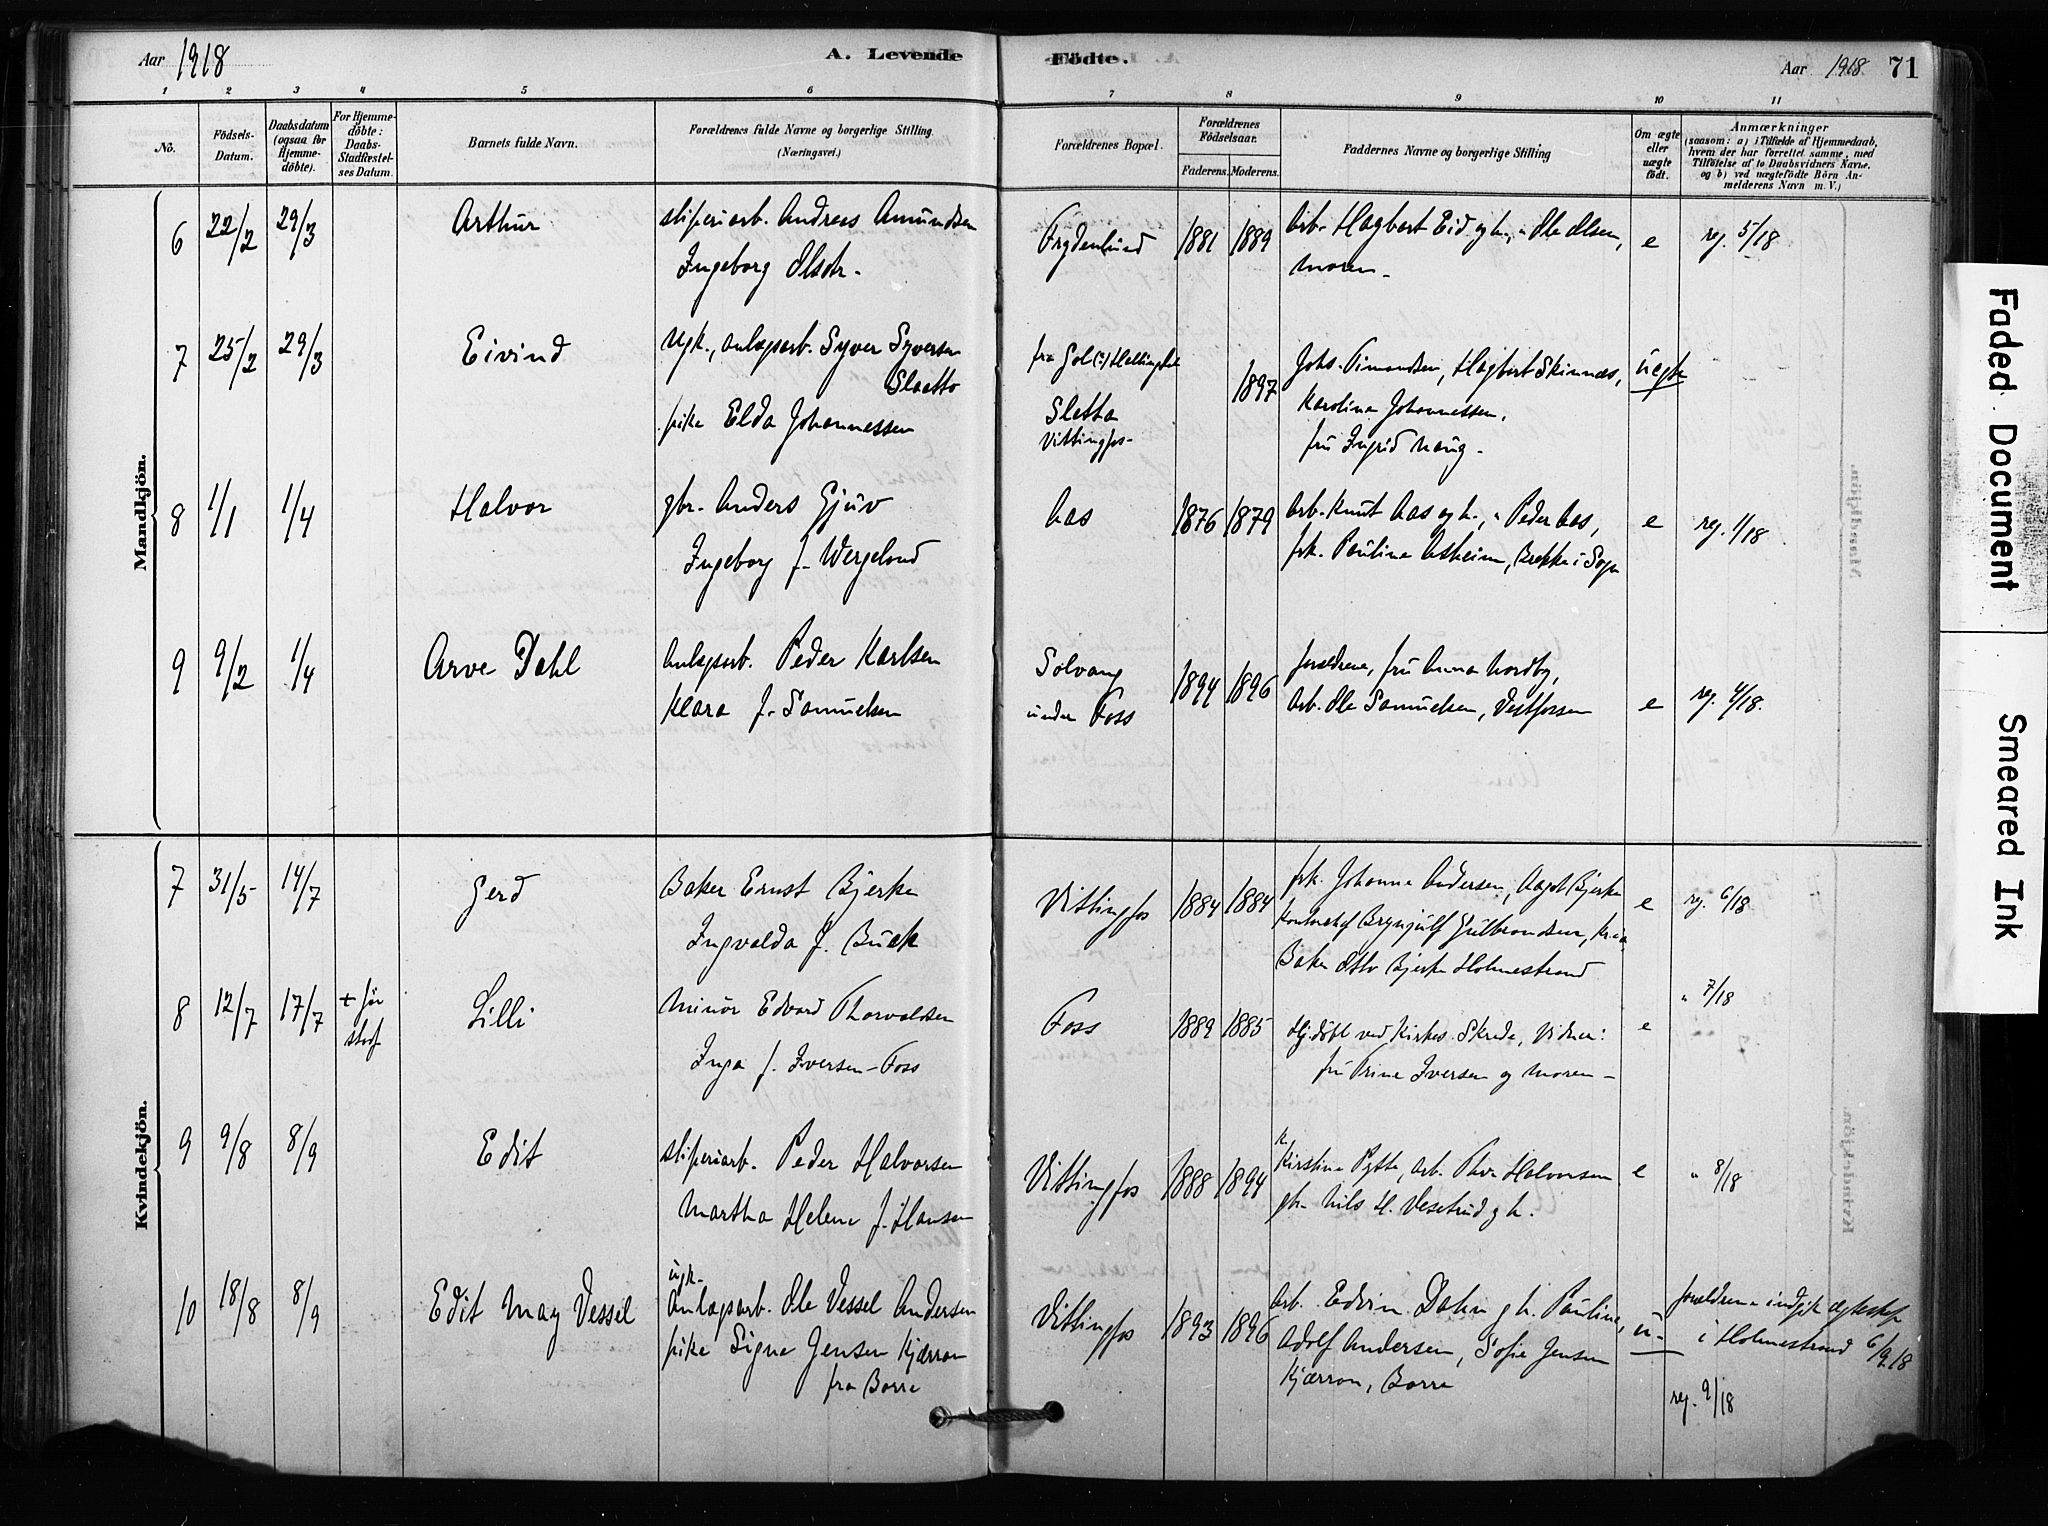 Aar 1918
A. Levende
Födte.
Aar 1918. 71
1 2 3 4 5 6 7 8 9 10 11
No.
Födsels-
Datum.
Daabsdatum
(ogsaa for
Hjemme-
döbte).
For Hjemme-
döbte:
Daabs-
Stadfæstel-
ses Datum.
Barnets fulde Navn.
Forældrenes fulde Navne og borgerlige Stilling.
(Næringsvei.)
Forældrenes Bopæl.
Forældrenes
Födselsaar.
Faderens. Moderens.
Faddernes Navne og borgerlige Stilling
Om ægte
eller
uægte
födt.
Anmærkninger
(saasom: a) i Tilfælde af Hjemmedaab,
hvem der har forrettet samme, med
Tilföielse af to Daabsvidners Navne,
og b) ved uægtefödte Börn An-
melderens Navn m. V.)
Mandkjön.
6 22/2 29/3 Arthur
sliperiarb. Andreas Amundsen
Ingeborg Olsdr.
Frydenlund 1881 1889
Arb. Hagbart Eid og h., " Ole Olsen,
moren
e reg. 5/18
7 25/2 29/3 Eivind
Ugk., anlægsarb. Syver Syversen
Slaatto
pike Elda Johannessen
fra Gol (?) Hallingdal
Sletta
Vittingfos
1897
Johs. Simondsen, Hagbart Skinnes,
Karoline Johannessen,
fru Ingrid Haug
uegte
8 1/1 1/4 Halvor
gbr. Anders Gjuv
Ingeborg f. Wergeland
Aas 1876 1879
Arb. Knut Aas og h., " Peder Aas,
frk. Pauline Asheim, Brekke i Sogn
e reg. 1/18
9 9/2 1/4 Arve Dahl
Anlægsarb. Peder Karlsen
Klara f. Samuelsen
Solvang
under Foss
1894 1896
foreldrene, fru Anna Nordby,
Arb. Ole Samuelsen, Vestfossen
e reg. 4/18.
Kvindekjön.
7 31/5 14/7 Gerd
Baker Ernst Bjerke
Ingvalda f. Buck
Vittingfos 1884 1884
frk. Johanne Andersen, Aagot Bjerke
kontorchef Brynjulf Gulbrandsen, Kr.ia
Baker Otto Bjerke Holmestrand
e reg. 6/18
8 12/7 17/7 + før
stadf
Lilli
Minør Edvard Thorvaldsen
Inga f. Iversen-Foss
Foss 1889 1885
Hj.døbt ved Kirkes. Skrede, Vidner:
fru Trine Iversen og moren
e " 7/18
9 9/8 8/9 Edit
sliperiarb. Peder Halvorsen
Martha Helene f. Hansen
Vittingfos 1888 1894
k.
Kirstine Pytte, arb. Thor Halvorsen
gbr. Nils H. Vesetrud og h.
e " 8/18
10 18/8 8/9 Edit May Vessel
ugk.
Anlægsarb. Ole Vessel Andersen
pike Signe Jensen Kjærran
fra Borre
Vittingfos 1893 1896
Arb. Edvin Dahn og h. Pauline,
Adolf Andersen, Sofie Jensen
Kjærran, Borre
u-
foreldrene indgik ægteskap
i Holmestrand 6/9 18
reg. 9/18
Faded Document
Smeared Ink